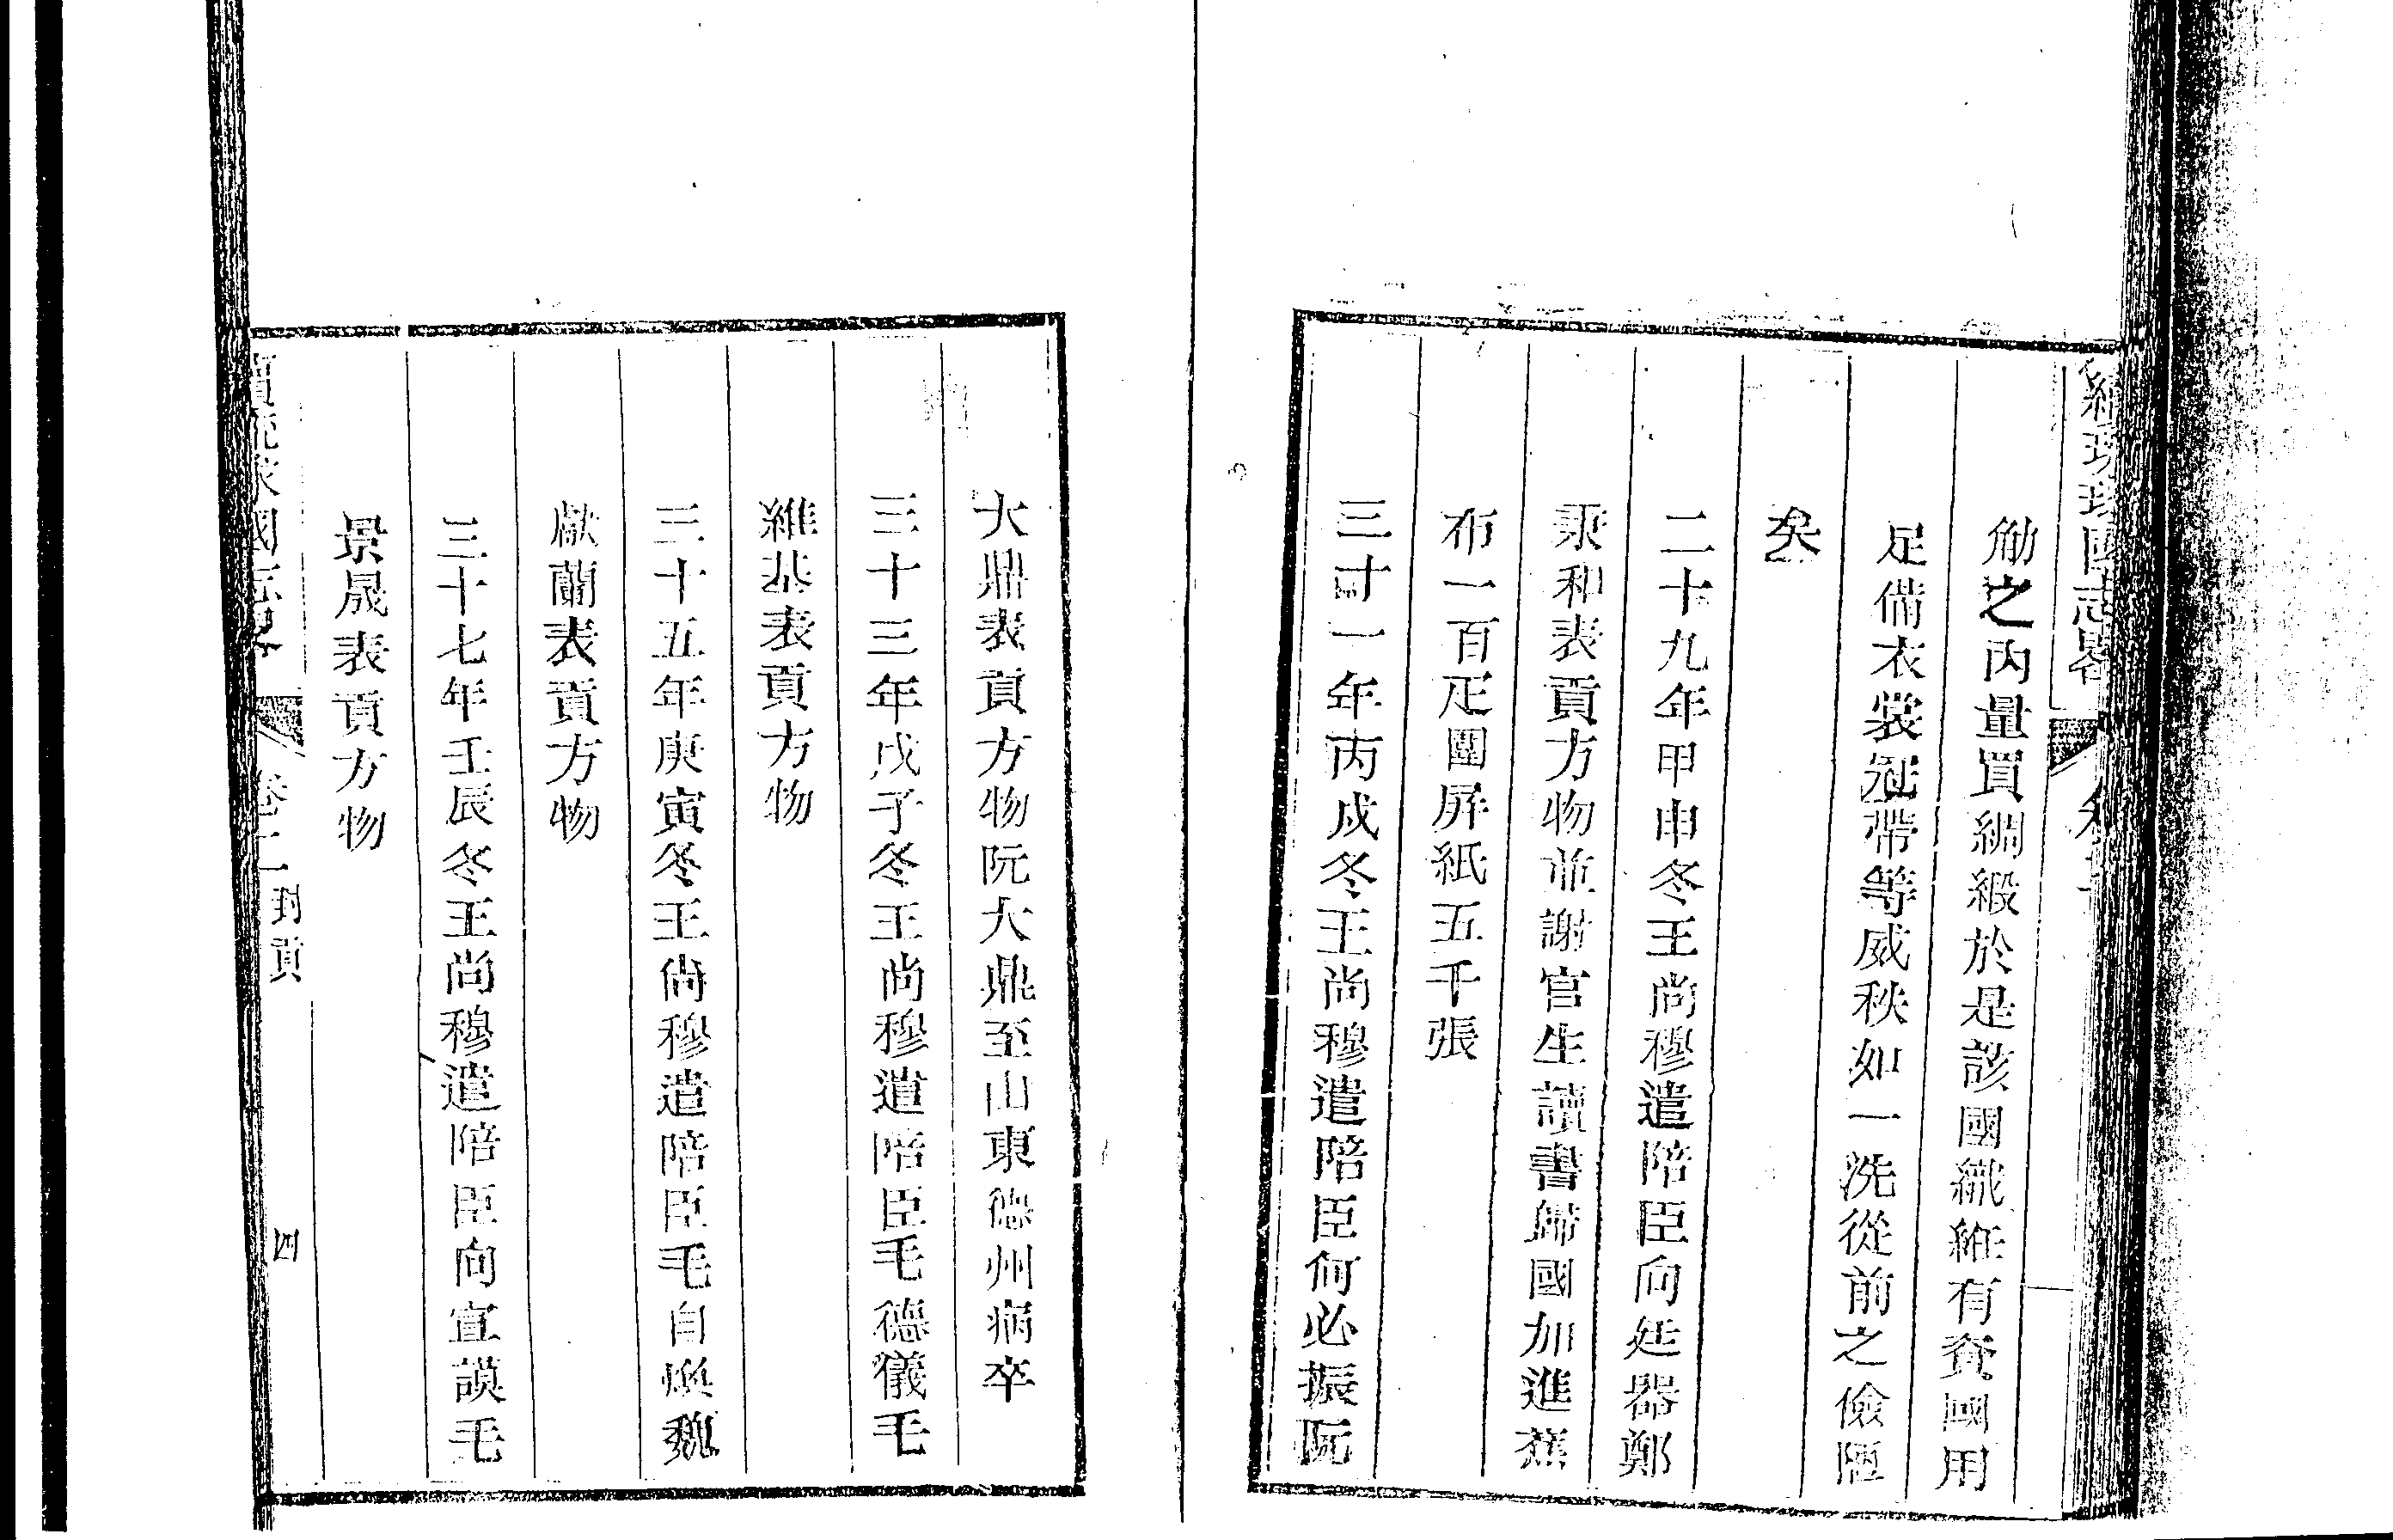 續琉球國志畧
觔之內量買綢緞於是該國織維有資國用
足備衣裳冠帶等威秩如一洗從前之儉陋
矣
二十九年甲申冬王尚穆遣陪臣向廷器鄭
秉和表貢方物並謝官生讀書歸國加進蕉
布一百疋圍屏紙五千張
三十一年丙戍冬王尚穆遣陪臣何必振阮
大鼎表貢方物阮大鼎至山東德州病卒
三十三年戊子冬王尚穆遣陪臣毛德儀毛
維基表貢方物
三十五年庚寅冬王尚穆遣陪臣毛自煥魏
獻蘭表貢方物
三十七年壬辰冬王尚穆遣陪臣向宣謨毛
景晟表貢方物
續琉球國志畧 卷二 封貢 四